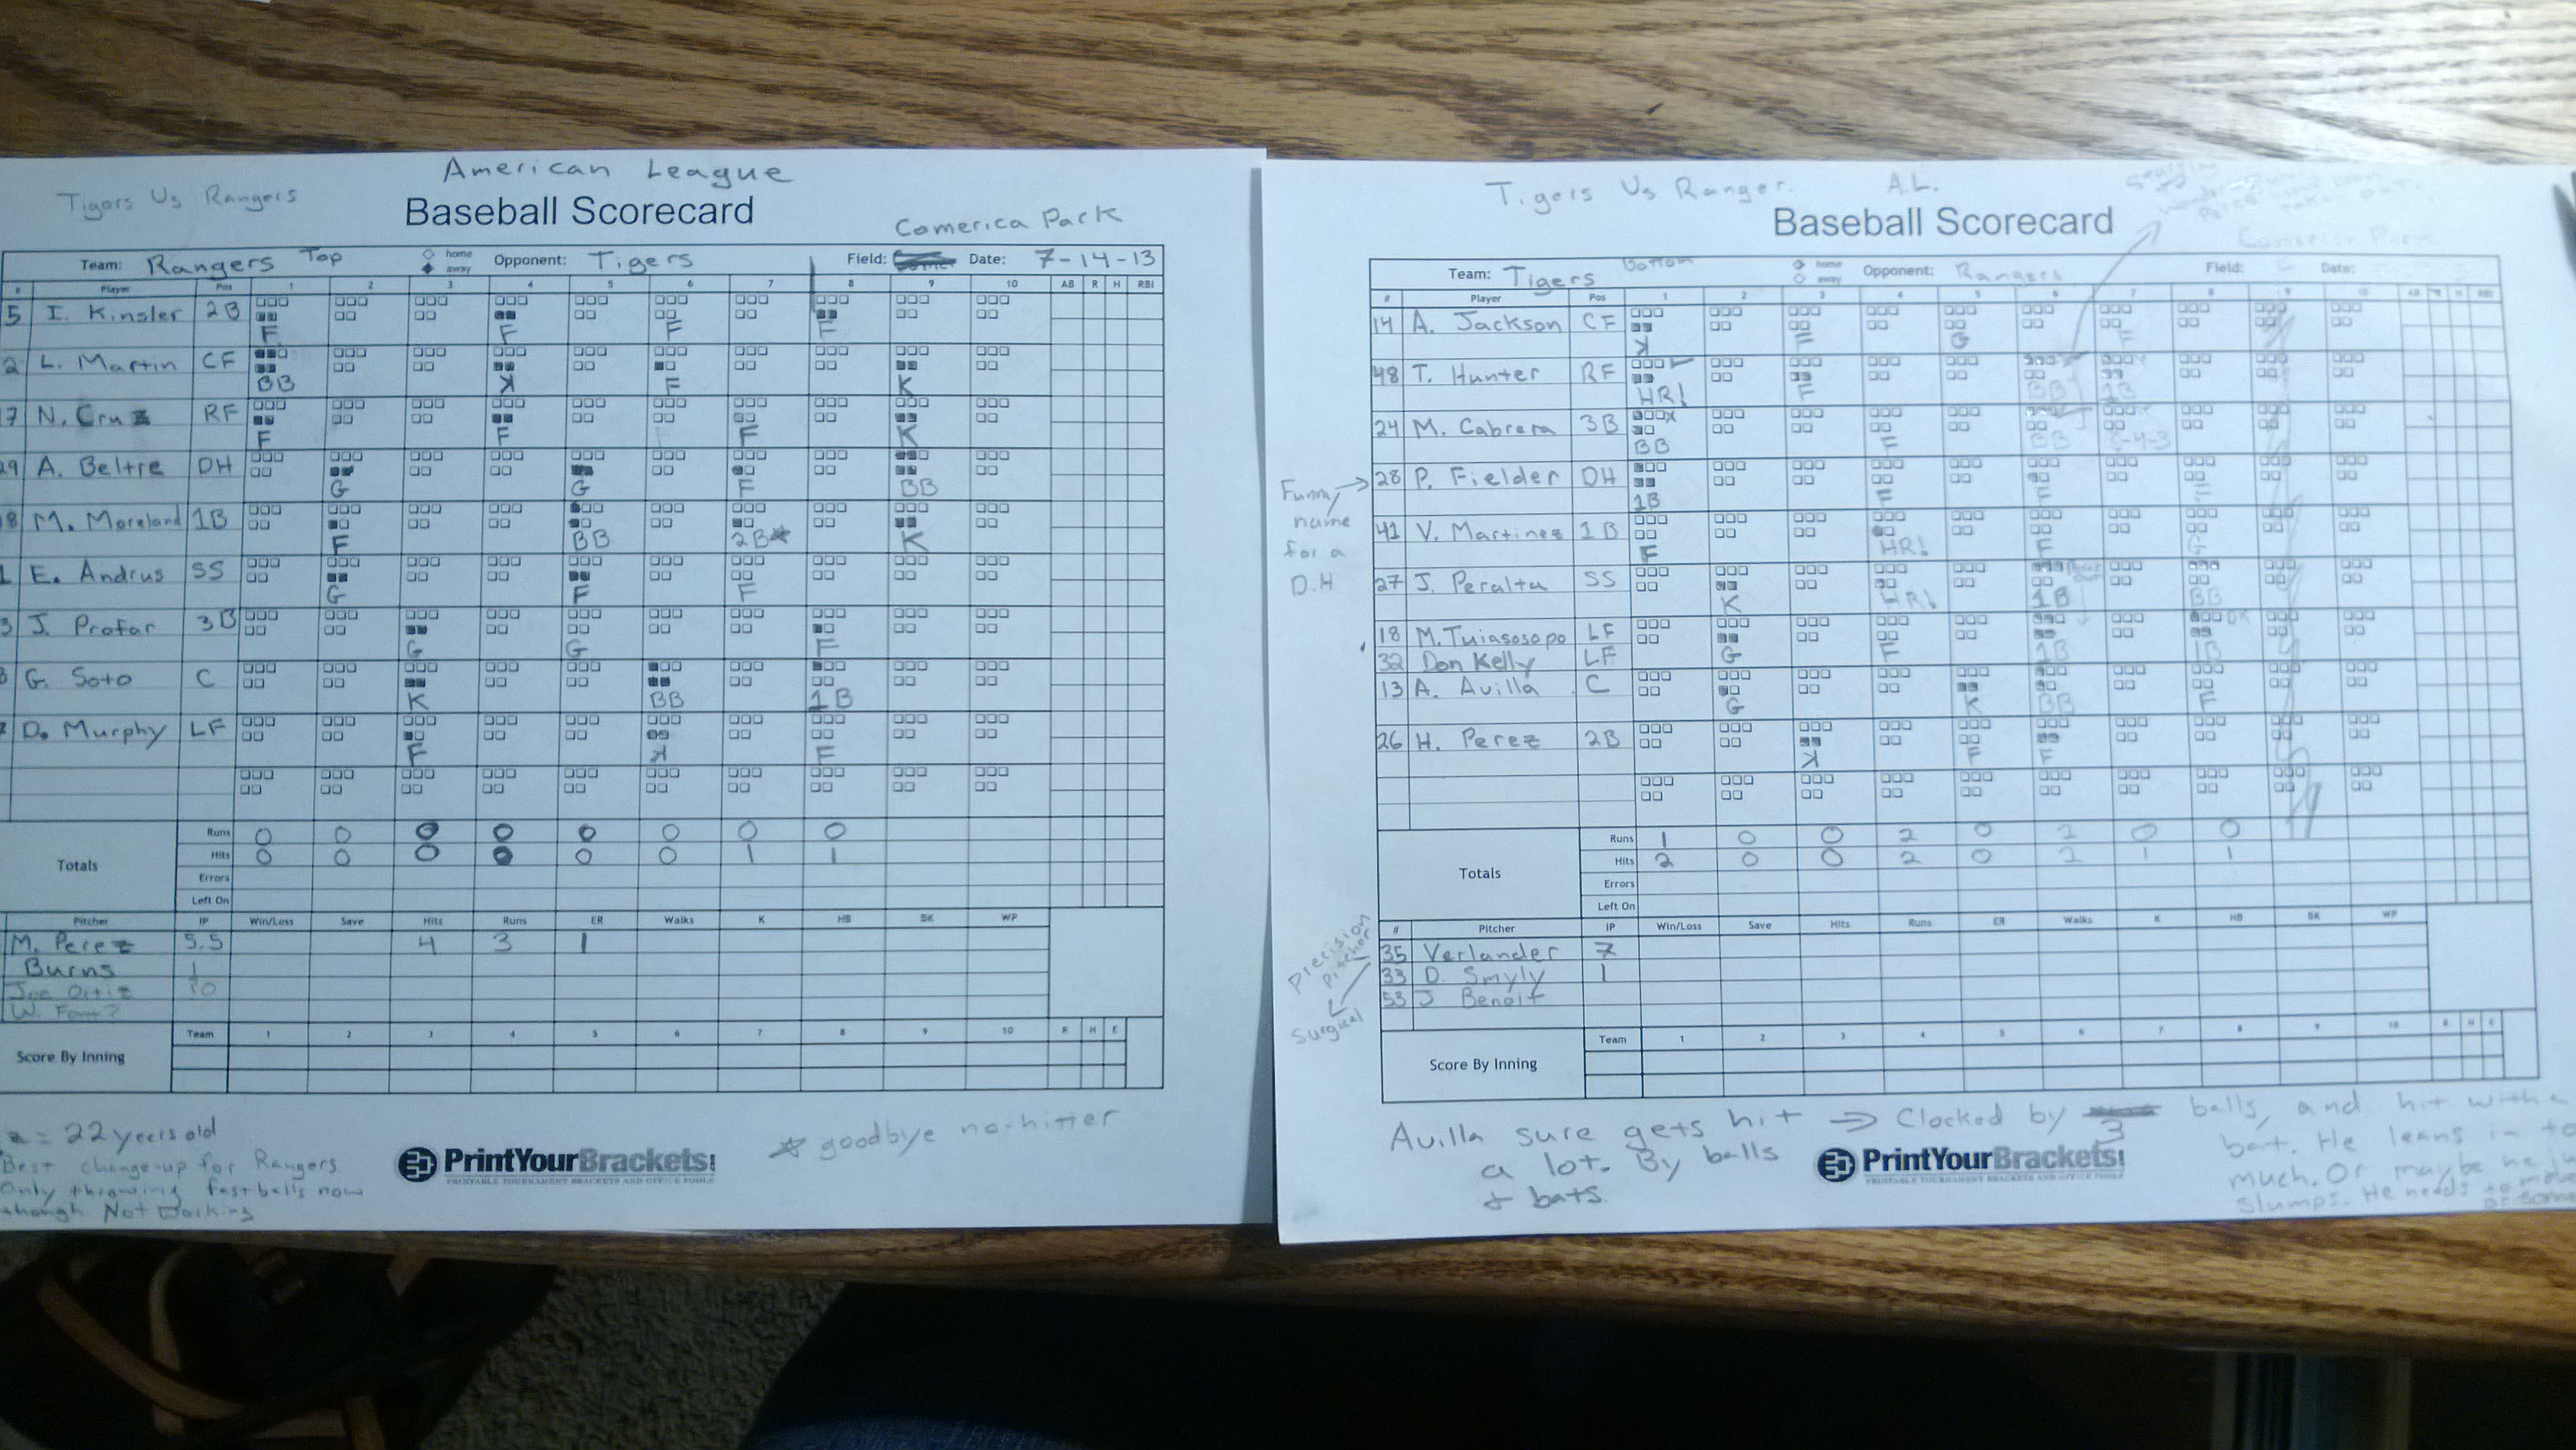 American League
Tigers Vs Rangers
Baseball Scorecard
Comerica Park
Team: Rangers Top home away Opponent: Tigers Field: Date: 7-14-13
# Player Pos 1 2 3 4 5 6 7 8 9 10 AB R H RBI
5 I. Kinsler 2B F F F F
2 L. Martin CF BB K F K
7 N. Cruz RF F F F K
29 A. Beltre DH G G F BB
8 M. Moreland 1B F BB 2B★ K
1 E. Andrus SS G F F
3 J. Profar 3B G G F
G. Soto C K BB 1B
D. Murphy LF F K F
Totals
Runs 0 0 0 0 0 0 0 0
Hits 0 0 0 0 0 0 1 1
Errors
Left On
Pitcher IP Win/Loss Save Hits Runs ER Walks K HB BK WP
M. Perez 5.5 4 3 1
Burns 1
Joe Ortiz
Team 1 2 3 4 5 6 7 8 9 10 R H E
Score By Inning
= 22 years old
Best change-up for Rangers
Only throwing fastballs now
though Not Working
★ goodbye no-hitter
PrintYourBrackets!
PRINTABLE TOURNAMENT BRACKETS AND OFFICE POOLS
Tigers Vs Ranger. A.L.
Baseball Scorecard
Comerica Park
Team: Tigers Bottom home away Opponent: Rangers Field: Date:
# Player Pos 1 2 3 4 5 6 7 8 9 10
14 A. Jackson CF K F G F
48 T. Hunter RF HR! F BB 1B
24 M. Cabrera 3B BB F BB
28 P. Fielder DH 1B F F
41 V. Martinez 1B F HR! F G
27 J. Peralta SS K HR! 1B BB
18 M. Tuiasosopo LF
32 Don Kelly LF G F 1B 1B
13 A. Avilla C G K BB F
26 H. Perez 2B K F F
Funny name for a D.H
Totals
Runs 1 0 0 2 0 2 0 0
Hits 2 0 0 2 0 2 1 1
Errors
Left On
# Pitcher IP Win/Loss Save Hits Runs ER Walks K HB BK WP
35 Verlander 7
33 D. Smyly 1
53 J Benoit
Precision Pitcher
Surgical
Team 1 2 3 4 5 6 7 8 9 10
Score By Inning
Avilla sure gets hit ⇒ Clocked by 3 balls, and hit with a
a lot. By balls
& bats.
bat. He leans in to
much. Or maybe he
slumps. He needs to
PrintYourBrackets!
PRINTABLE TOURNAMENT BRACKETS AND OFFICE POOLS